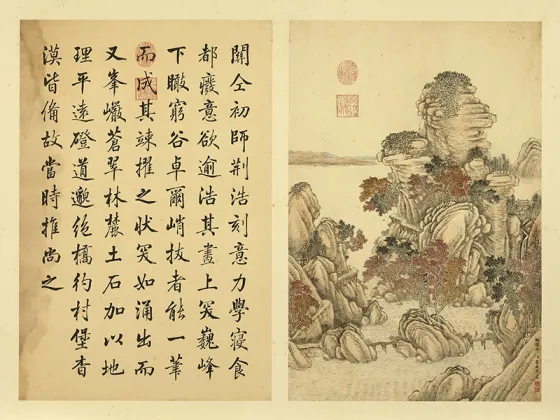 關仝初師荆浩刻意力學寢食
都癈意欲逾浩其畫上突巍峰
下瞰窮谷卓爾峭拔者能一筆
而成其竦擢之狀突如涌出而
又峯巘蒼翠林麓土石加以地
理平遠磴道邈絶橋彴村堡杳
漠皆備故當時推尚之